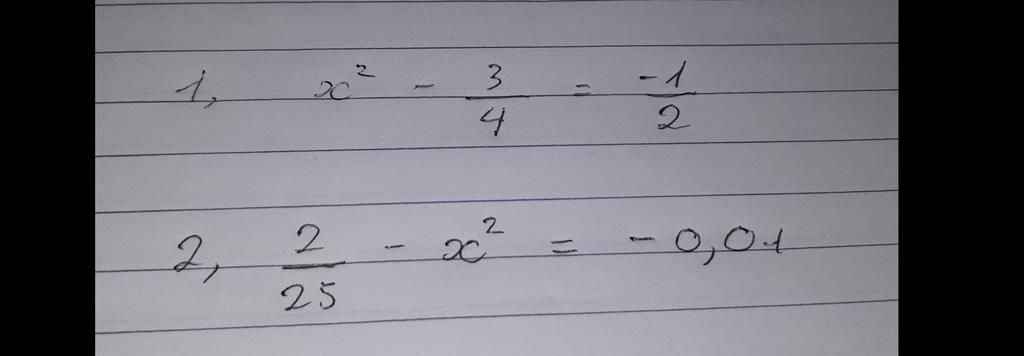 1, x² - 3/4 = -1/2
2, 2/25 - x² = -0,01